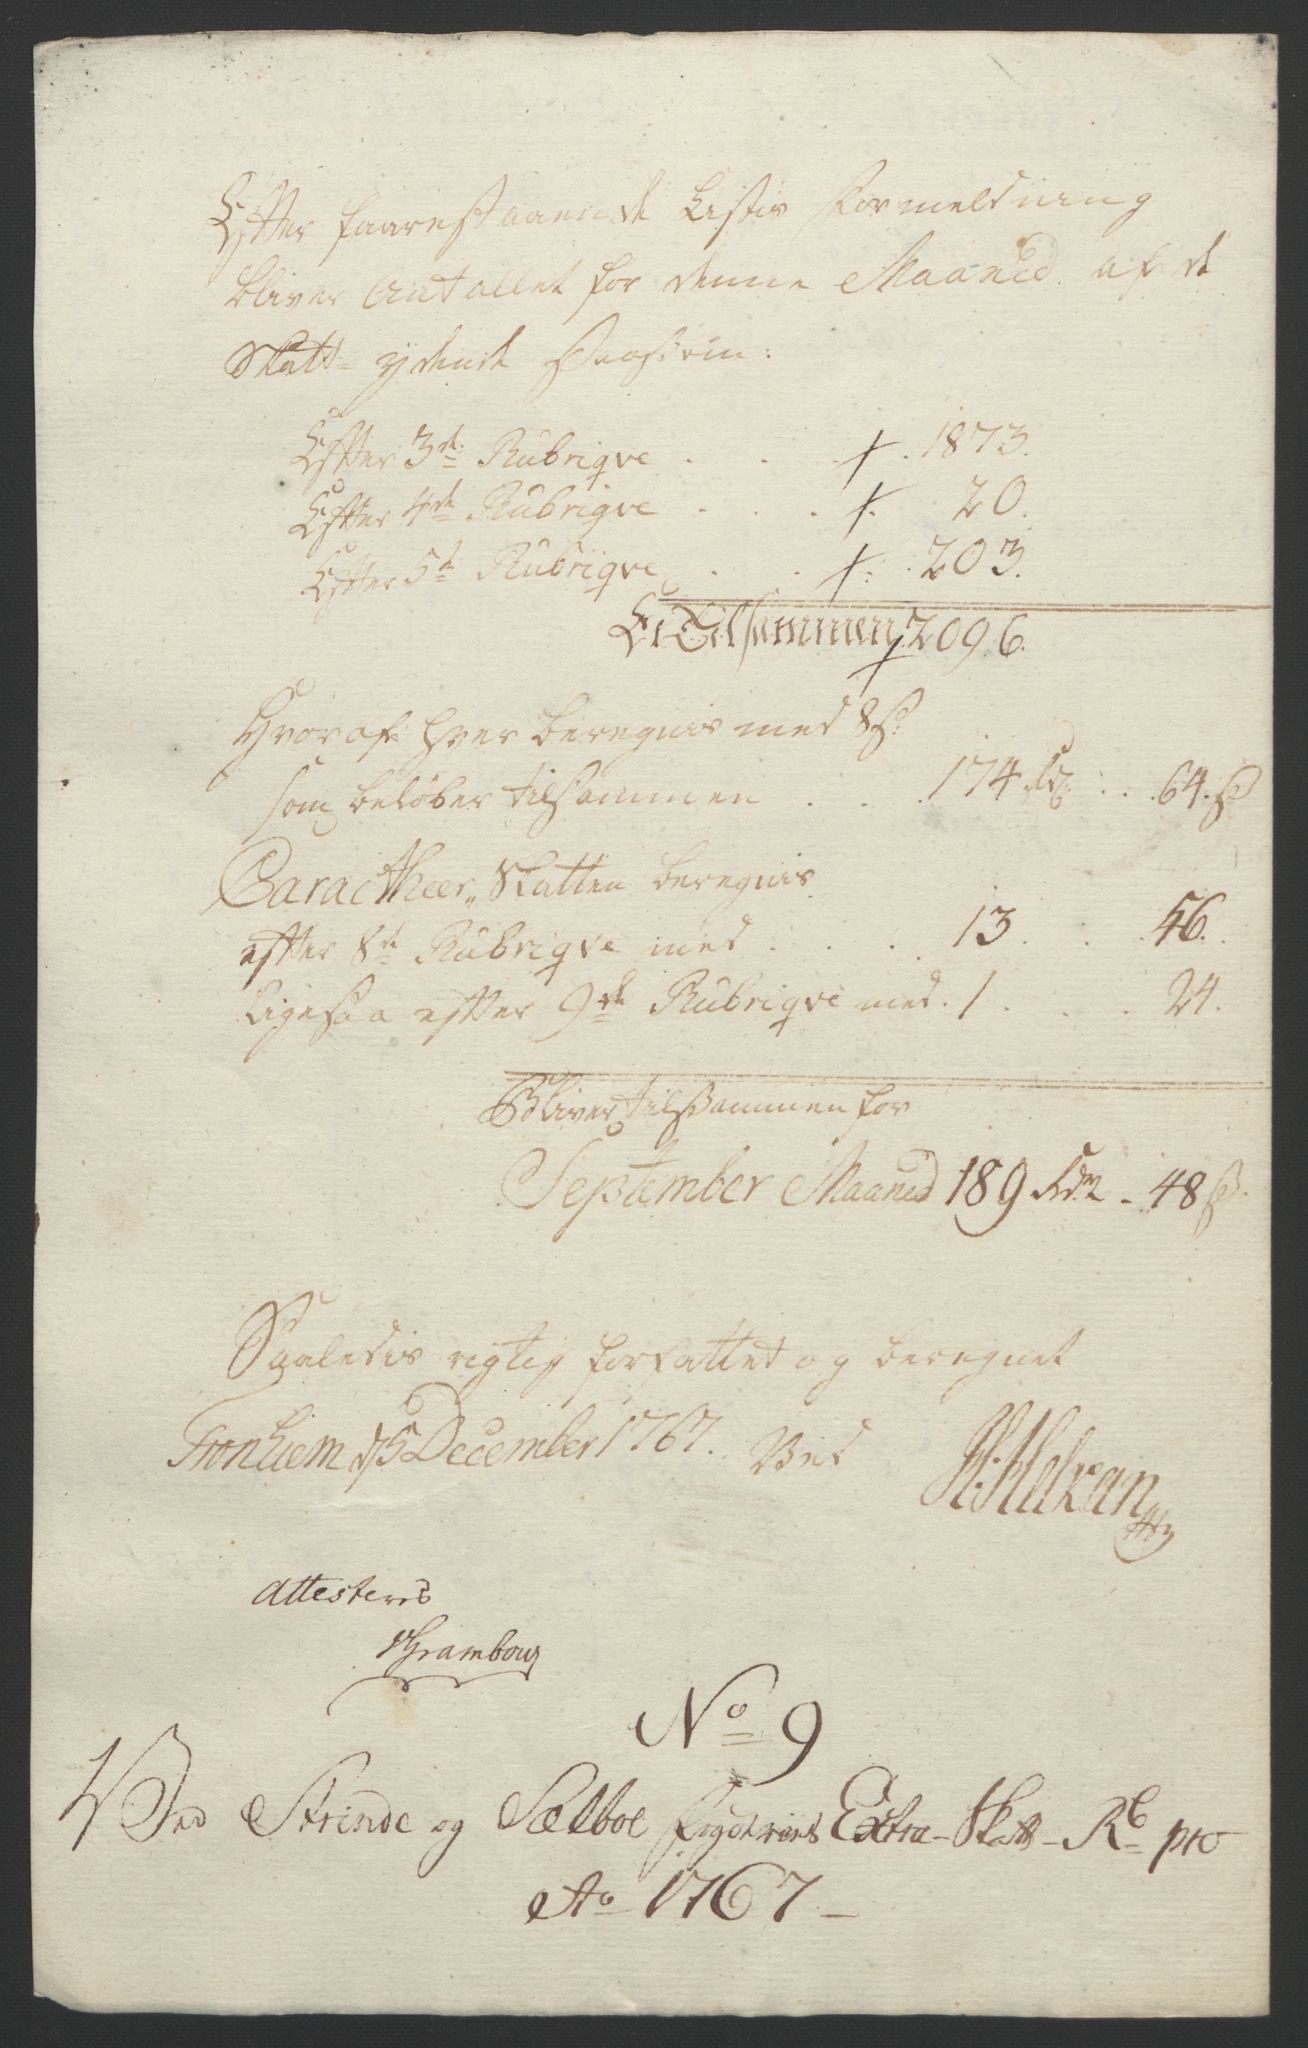 Efter faarestaaende Listes Formeldning
bliver Antallet for denne Maaned af de
Skatt-ydende Personer:
Efter 3de Rubriqve . . . 1873.
Efter 4de Rubriqve . . . 20.
Efter 5te Rubriqve . . . 203.
Er Tilsammen 2096.
Hvoraf hver beregnis med 8 s:
som beløber tilsammen . . . 174 Rd . . 64. s
Caractheer Skatten beregnis
efter 8de Rubriqve med . . . 13. . . 56.
Ligesaa efter 9de Rubriqve med. 1 . . . 24.
Bliver tilsammen for
September Maaned 189 Rdr - 48 s.
Saaledis rigtig forfattet og beregnet
Tronhiem d 5 December 1767. Ved
Attesteres
No 9
Ved Strinde og Sælboe Fogderies Extra-Skatt-R. pro
Ao 1767